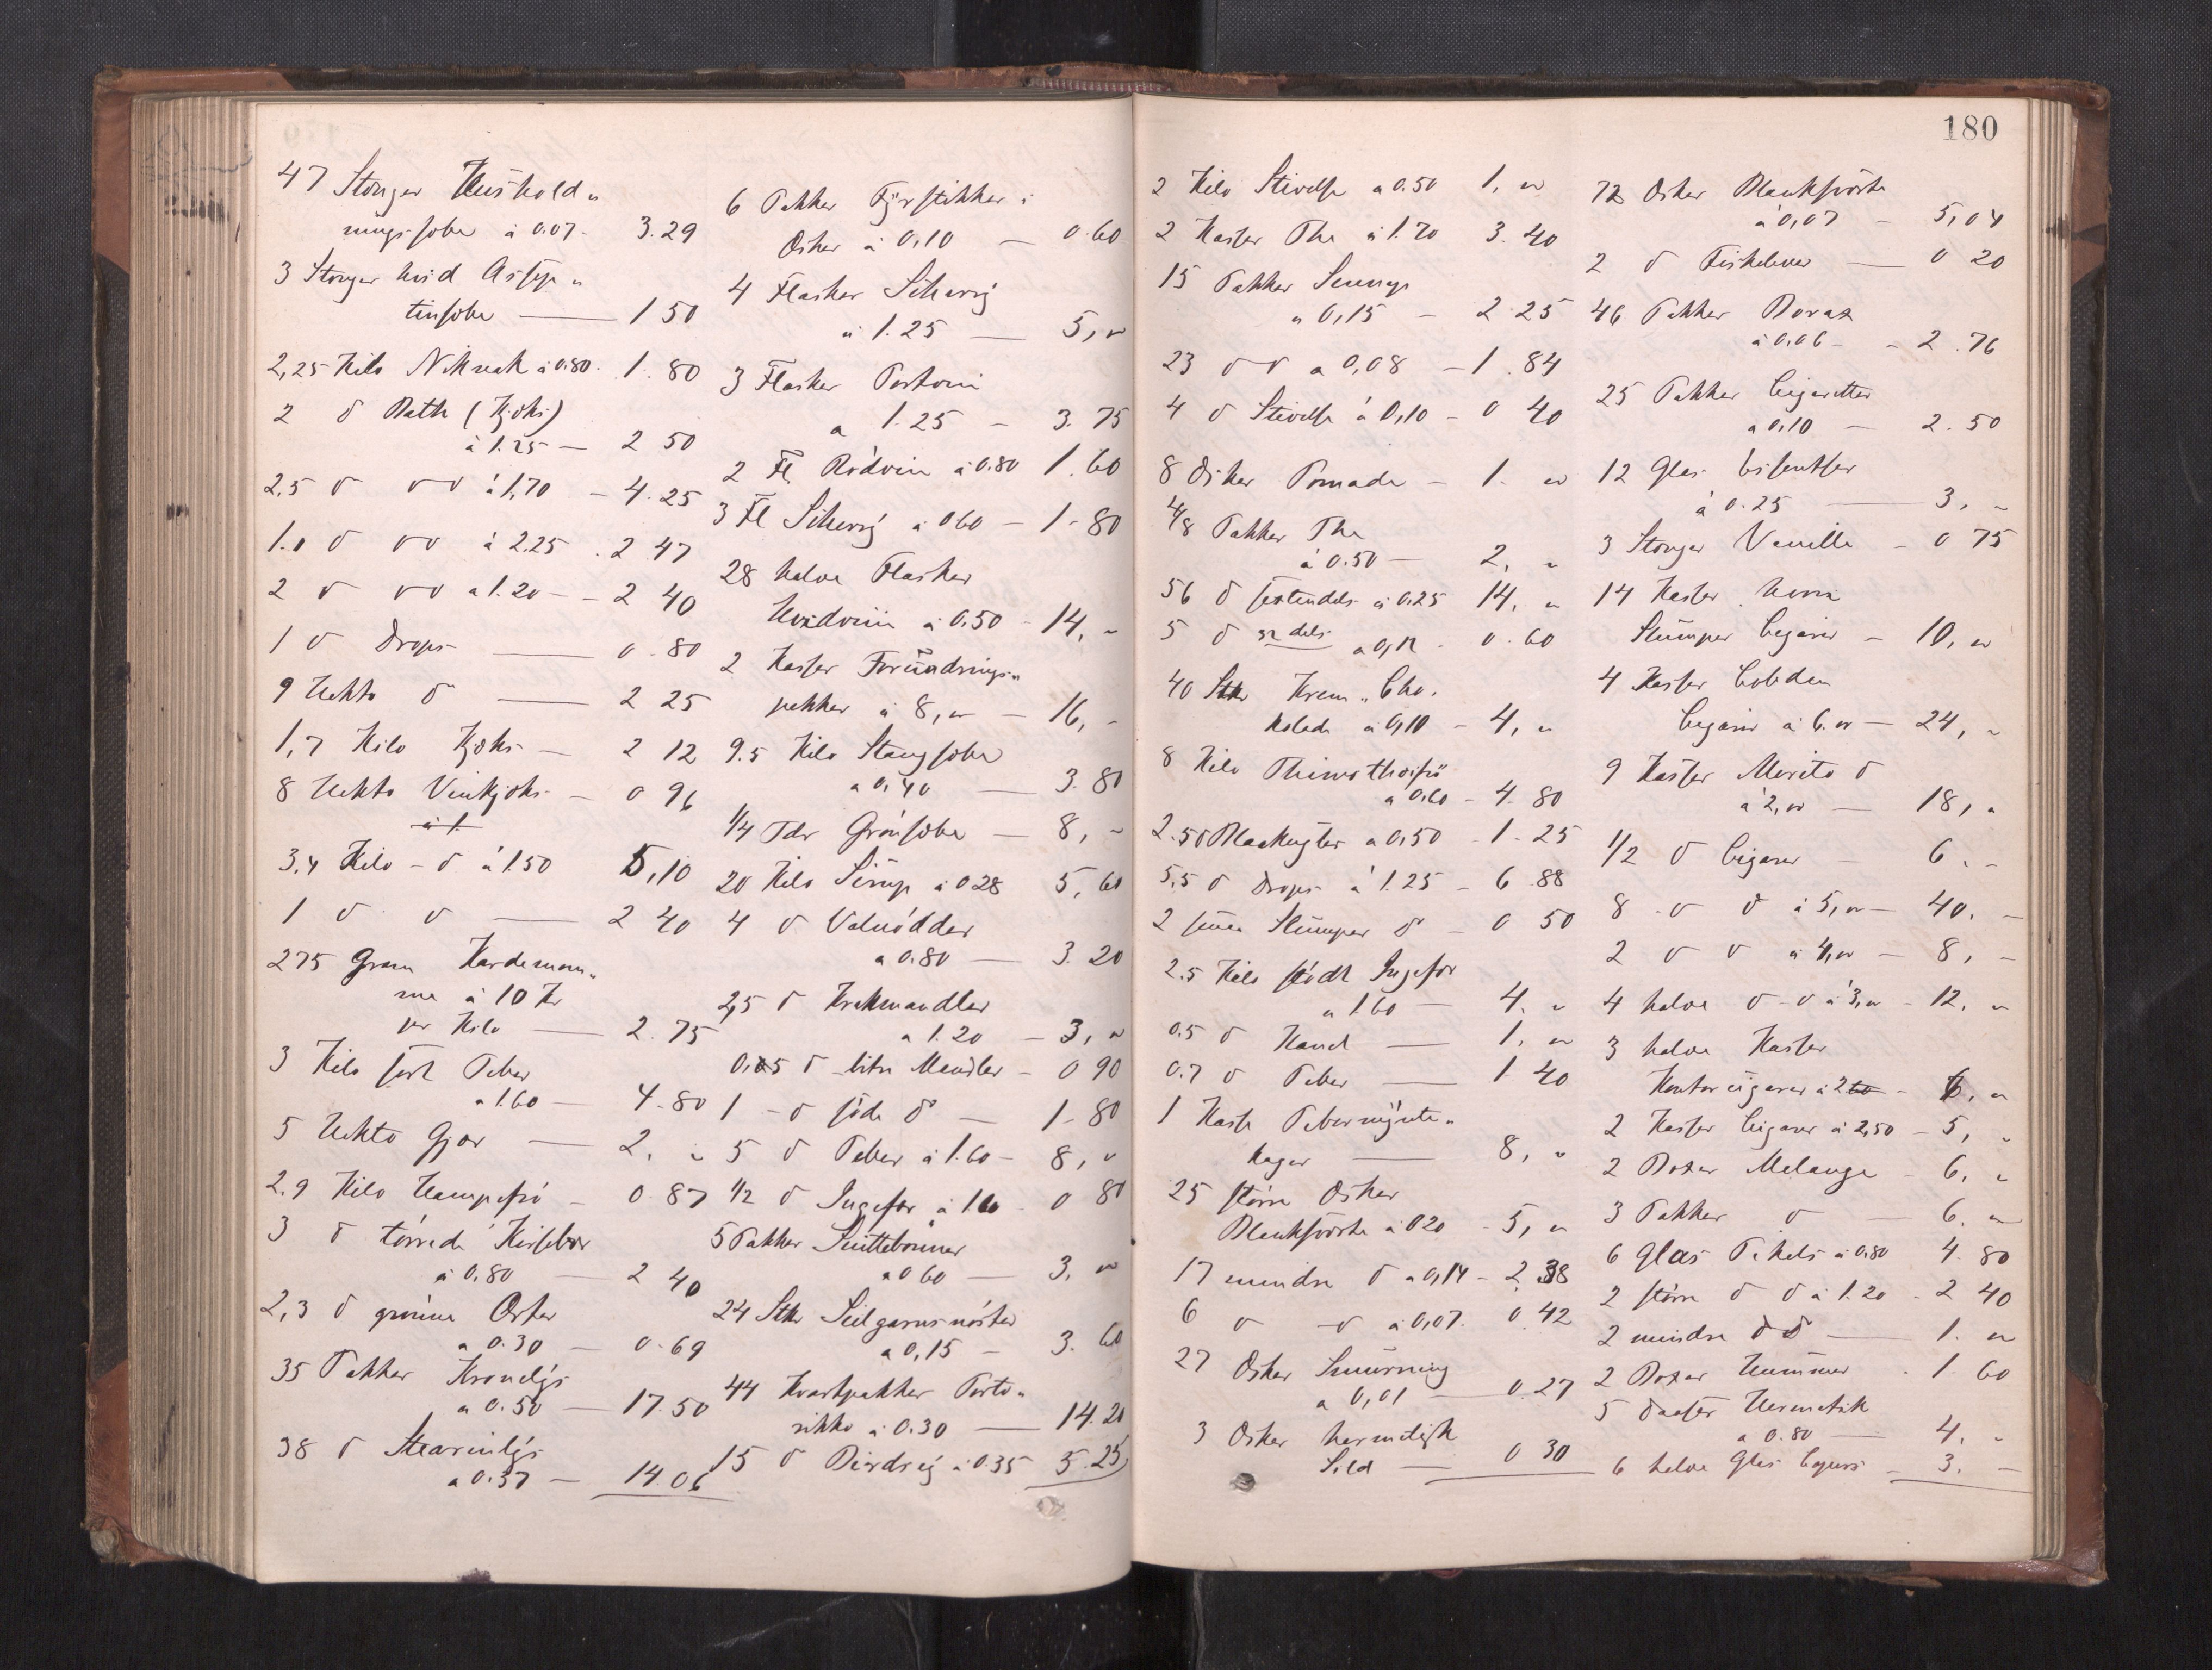 47 Stænger Hushold„
ningssæbe à 0.07 - 3.29
3 Stænger hvid Assep„
tinsæbe — 1 50
2,25 Kilo Niknak à 0.80 - 1. 80
2 d Bath (Kjæks)
à 1.25 — 2 50
2,5 d dd à 1,70 - 4.25
1.1 d dd à 2.25 . 2.47
2 d dd a 1.20 - - 2 40
1 d Drops — 0.80
9 Hekto d — 2 25
1,7 Kilo Kjæks — 2 12
8 Hekto Vinkjæks — 0 96
à 1.
3,4 Kilo - d à 1.50 5,10
1 d d — 2 40
275 Gram Kardemom„
me à 10 Kr
per Kilo — 2.75
3 Kilo sort Peber
a 1.60 — 4.80
5 Hekto Gjær — 2. „
2.9 Kilo Hampefrö - 0.87
3 d tørrede Kirsebær
à 0,80 — 2 40
2,3 d grønne Erter
a 0.30 — 0.69
35 Pakker Kronelys
a 0.50 — 17.50
38 d Stearinlys
a 0.37 — 14.06
6 Pakker Fyrstikker i
Æsker à 0,10 — 0.60
4 Flasker Scherry
à 1.25 — 5, „
3 Flasker Portvin
a 1.25 — 3.75
2 Fl. Rødvin à 0.80 1.60
3 Fl Scherry à 0 60 — 1.80
28 halve Flasker
Hvidvin à 0.50 - 14, „
2 Kasser Forundrings„
pakker à 8, „ — 16, „
9.5 Kilo Stangsæbe
a 0,40 — 3.80
1/4 Tdr Grønsæbe — 8, „
20 Kilo Sirup à 0 28 5,60
4 d Valnødder
a 0.80 — 3.20
2,5 d Krakmandler
a 1.20 — 3, „
d bitre Mandler - 0 90
1 - d søde d — 1.80
5 d Peber à 1.60 — 8, „
1/2 d Ingefær à 1.60 - 0 80
5 Pakker Snittebønner
a 0 60 — 3, „
24 Stk Seilgarnsnøster
a 0,15 — 3.60
44 Kvartpakker Porto„
rikko à 0.30 — 14.20
15 d à 0.35 5.25
180
2 Kilo Stivelse a 0.50 1, „
2 Kasser The à 1.70 3.40
15 Pakker Sennep
a 0,15 - 2.25
23 d d a 0,08 - 1.84
4 d Stivelse à 0,10 - 0 40
8 Æsker Pomade - 1. „
4/8 Pakker The
à 0.50 — 2, „
56 d sextendels à 0,25 14, „
5 d 32 dels a 0,12 - 0.60
40 Stk Krem„Cho.
kolade a 0,10 - 4, „
8 Kilo Thimotheifrö
a 0,60 - 4.80
2.5 d Blaakugler a 0,50 - 1.25
5,5 d Drops à 1.25 - 6 88
2 smaa Slumper d - 0 50
2.5 Kilo stødt Ingefær
a 1.60 — 4, „
0.5 d Kanel — 1, „
0.7 d Peber — 1 40
1 Kasse Pebermynte„
kager — 8, „
25 større Æsker
Blanksværte à 0 20 - 5, „
17 mindre d a 0,14 - 2.38
6 d d a 0,07 - 0.42
27 Æsker Smurning
a 0,01 — 0.27
3 Æsker hermetisk
Sild — 0 30
72 Æsker Blanksværte
à 0,07 - 5,04
2 d Fiskelever — 0 20
46 Pakker Borax
à 0,06 - - 2.76
25 Pakker Cigaretter
a 0,10 — 2.50
12 Glas Essentser
à 0.25 — 3, „
3 Stænger Vanille - 0 75
14 Kasser hvori
Slumper Cigarer - 10, „
4 Kasser Cobden
Cigarer à 6. „ — 24, „
9 Kasser Merito d
à 2, „ — 18, „
1/2 d Cigarer — 6. -
8 d d à 5, „ — 40, -
2 d d à 4, „ — 8, -
4 halve d - d à 3, „ - 12, „
3 halve Kasser
Kontorcigarer à 2 60 - 6, „
2 Kasser Cigarer à 2,50 - 5, „
2 Boxer Melange - 6, „
3 Pakker d — 6. „
6 Glas Pikels à 0.80 4.80
2 større d d à 1.20 - 2 40
2 mindre d d — 1. „
2 Boxer Hummer - 1 60
5 Daaser Hermetik
a 0.80 — 4. „
6 halve Glas - 3. -